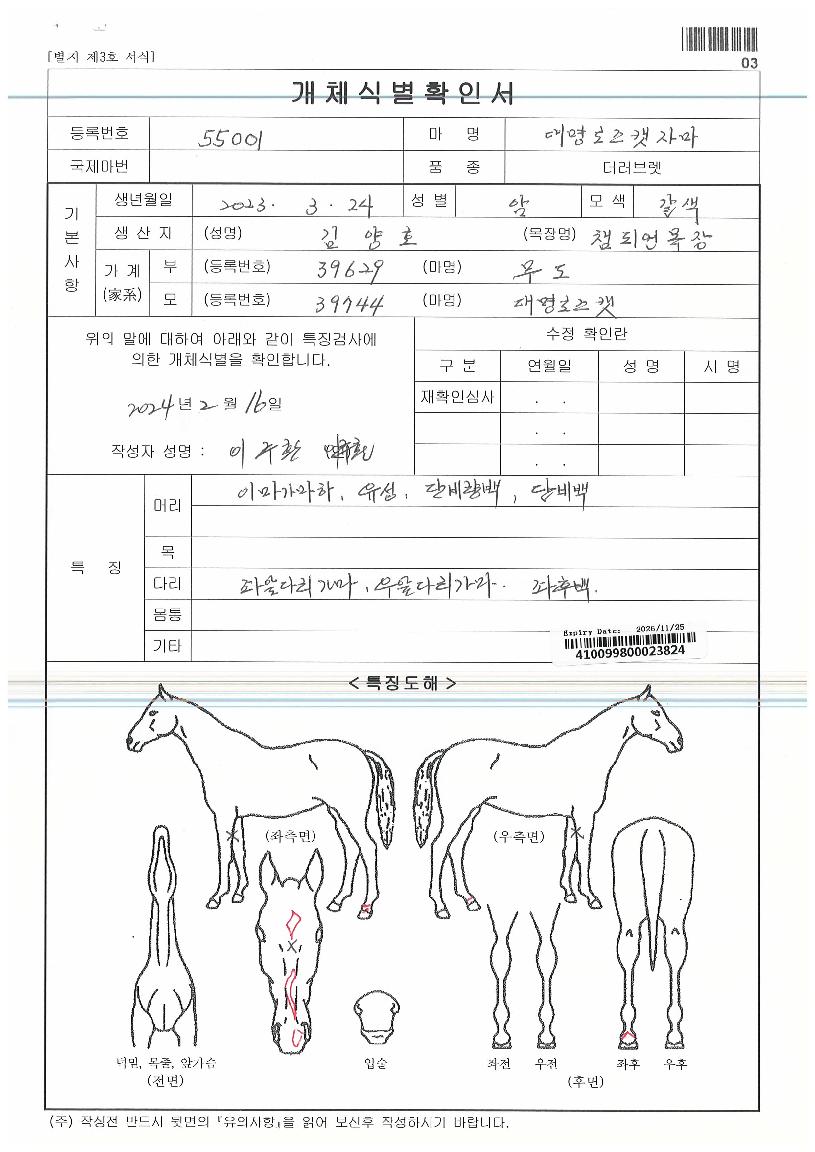 [별지 제3호 서식]
03
개체식별확인서
등록번호 55001 마 명 대명로즈캣자마
국제마번 품 종 더러브렛
기본사항
생년월일 2023. 3. 24 성 별 암 모 색 갈색
생 산 지 (성명) 김양호 (목장명) 챔피언목장
가 계 (家系) 부 (등록번호) 39629 (마명) 무도
모 (등록번호) 39744 (마명) 대명로즈캣
위의 말에 대하여 아래와 같이 특징검사에
의한 개체식별을 확인합니다.
2024년 2월 16일
작성자 성명 : 이주환
수정 확인란
구 분 연월일 성 명 서 명
재확인심사 . .
. .
. .
특 징
머리 이마가마하, 유성, 단비량백, 단비백
목
다리 좌앞다리가마, 우앞다리가마. 좌후백.
몸통
기타
Expiry Date: 2026/11/25
410099800023824
< 특징도해 >
(좌측면) (우측면)
너밑, 목줄, 앞가슴
(전면)
입술
좌전 우전 좌후 우후
(후면)
(주) 작성전 반드시 뒷면의 『유의사항』을 읽어 보신후 작성하시기 바랍니다.